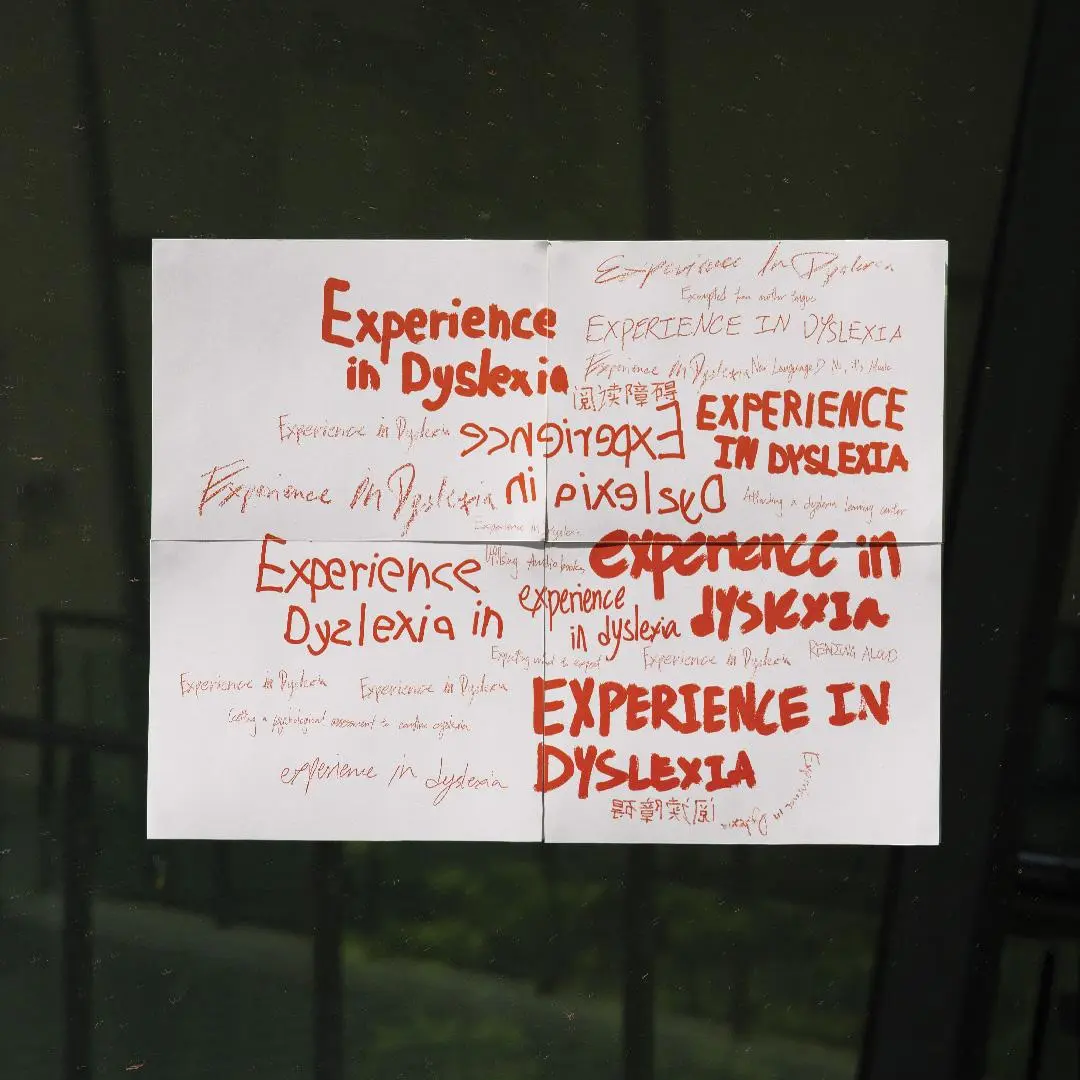 Experience In Dyslexia
Exempted from mother tongue
Experience
in Dyslexia
EXPERIENCE IN DYSLEXIA
Experience in Dyslexia
New Language? No, it's Music
阅读障碍
EXPERIENCE
IN DYSLEXIA
Experience in Dyslexia
Experience
in Dyslexia
Experience in Dyslexia
Attending a dyslexia learning center
Experience in Dyslexia
experience in
dyslexia
Experience
Dyslexia in
Utilising Audiobooks
experience
in dyslexia
Expecting what to expect
Experience in Dyslexia
READING ALOUD
Experience in Dyslexia
Experience in Dyslexia
EXPERIENCE IN
DYSLEXIA
a psychological assessment to confirm dyslexia
experience in dyslexia
Experience in Dyslexia
阅读障碍